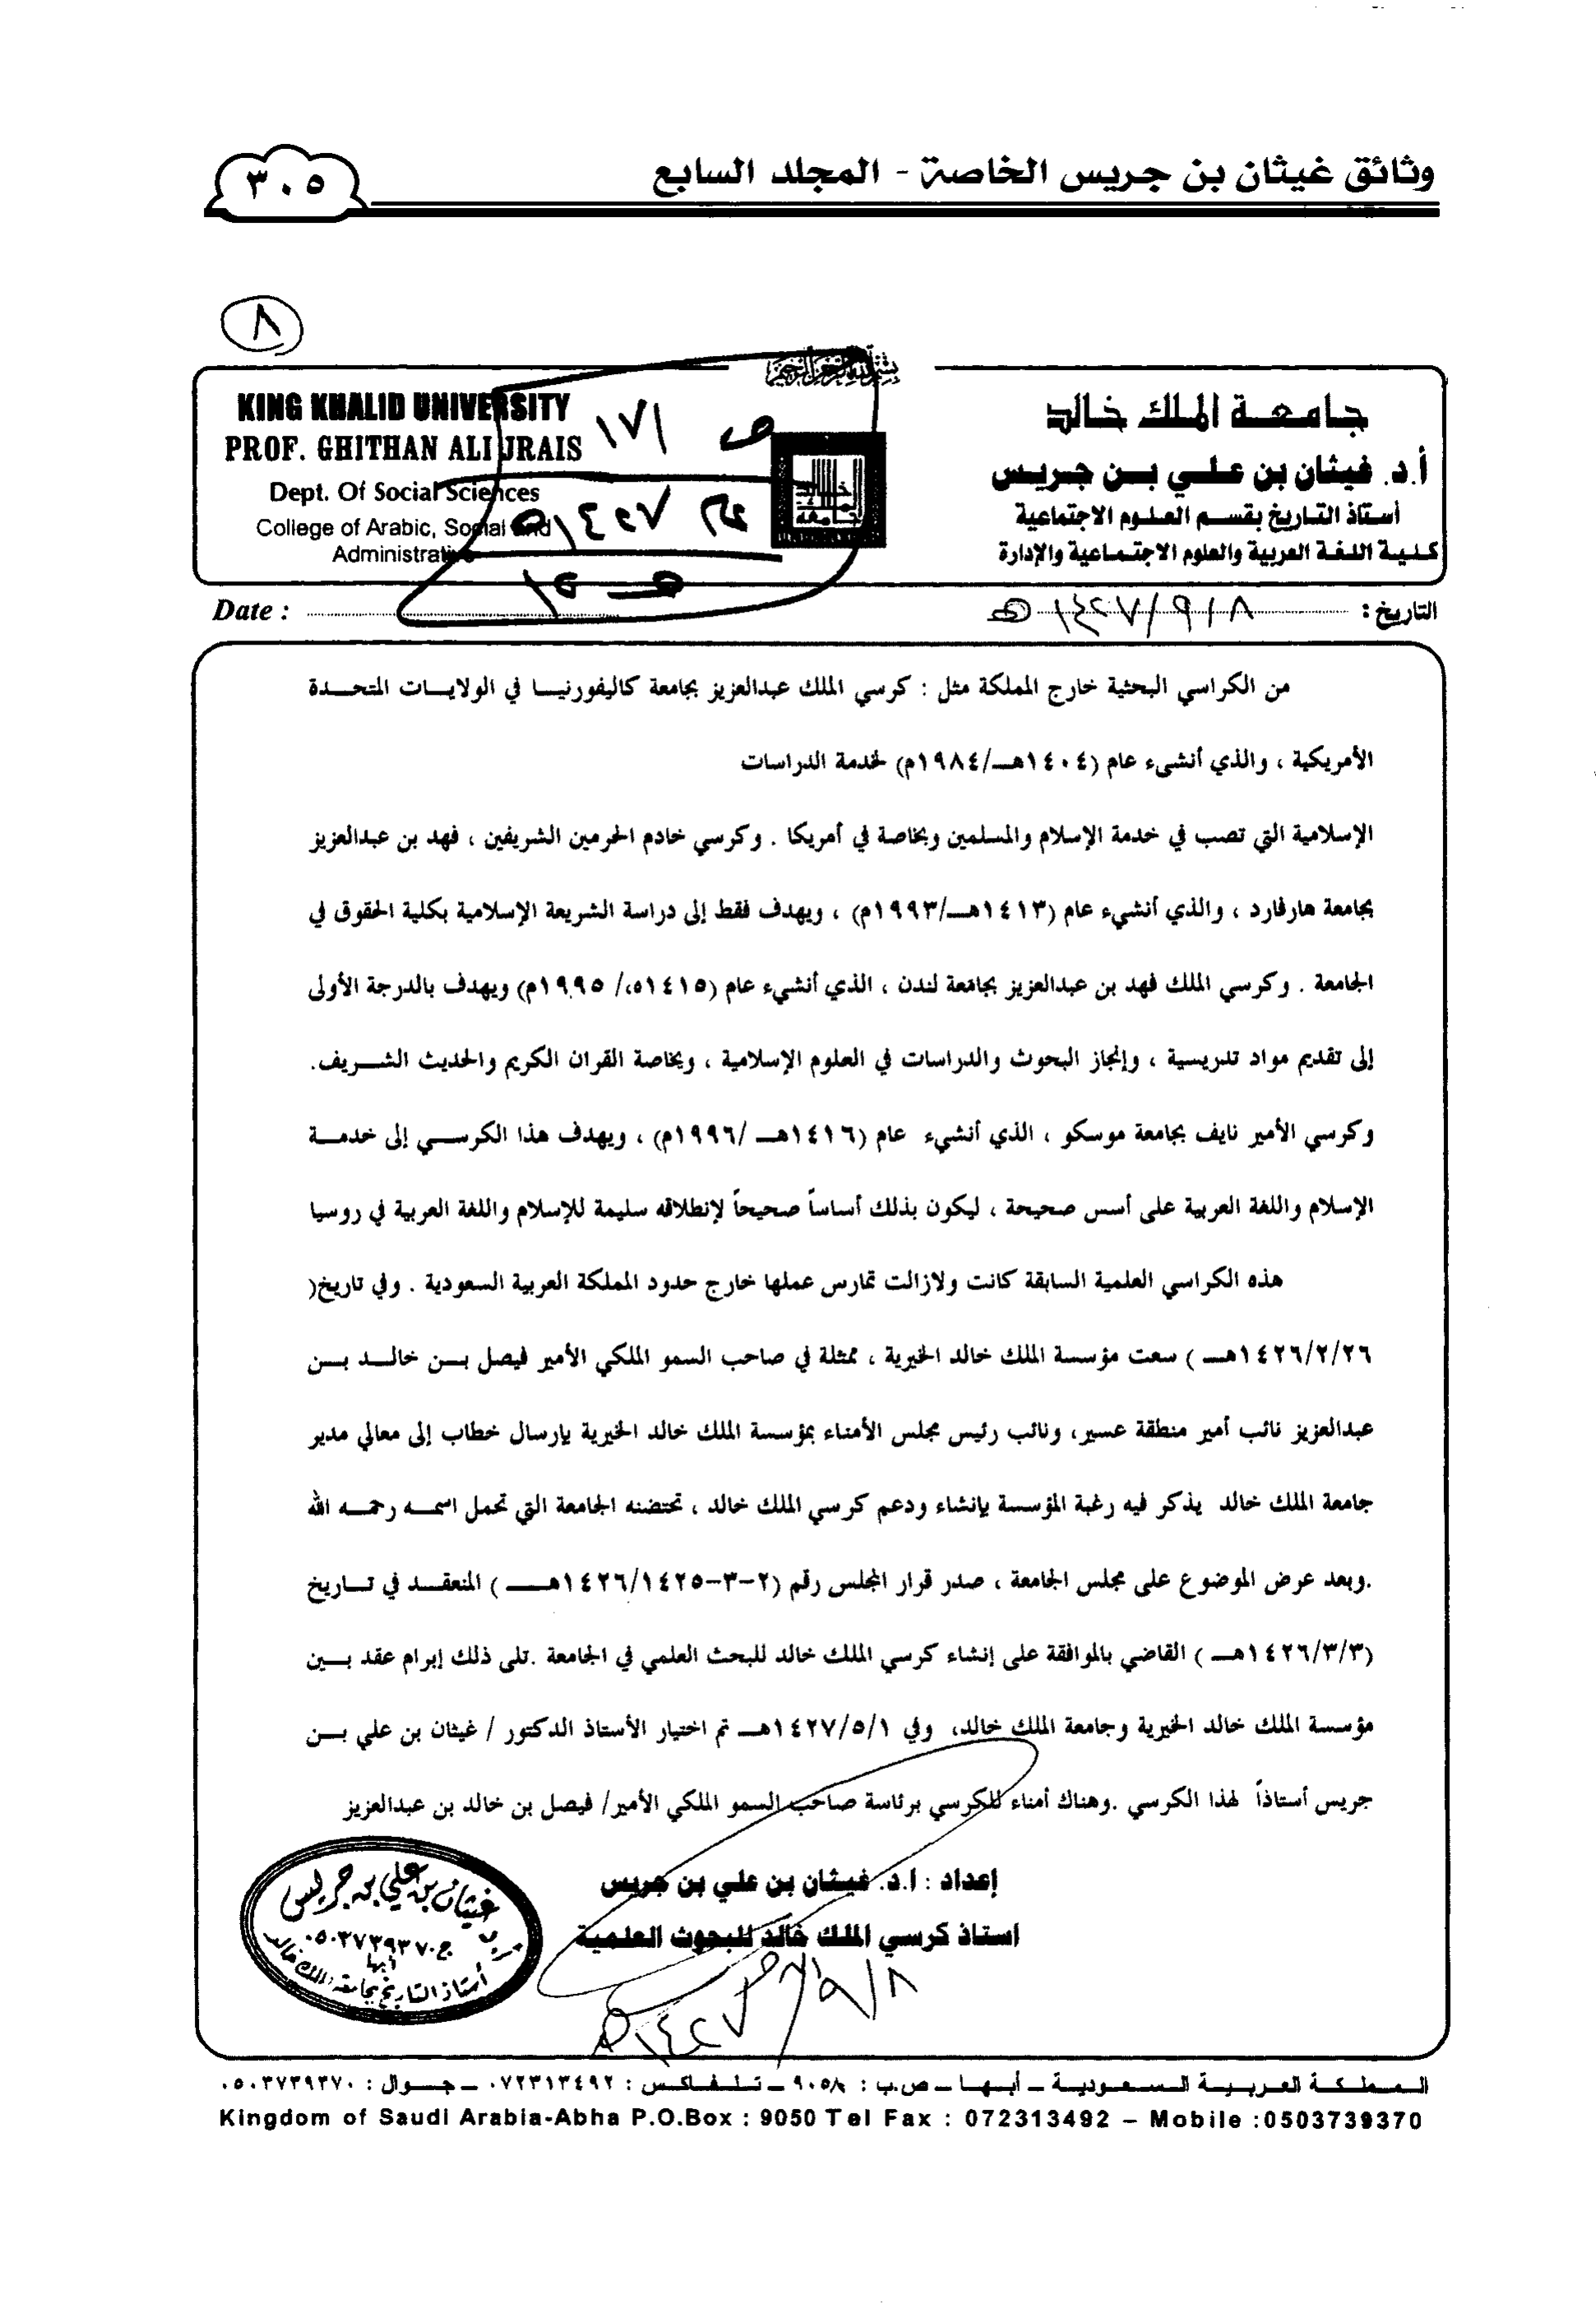 وثائق غيثان بن جريس الخاصة - المجلد السابع
٣٠٥
٨
جامعة الملك خالد
أ.د. غيثان بن علي بن جريس
أستاذ التاريخ بقسم العلوم الاجتماعية
كلية اللغة العربية والعلوم الاجتماعية والإدارة
KING KHALID UNIVERSITY
PROF. GHITHAN ALI JRAIS
Dept. Of Social Sciences
College of Arabic, Social and
Administrative
ص ١٧١
التاريخ : ٨/٩/١٤٢٧هـ
Date :
من الكراسي البحثية خارج المملكة مثل : كرسي الملك عبدالعزيز بجامعة كاليفورنيا في الولايات المتحدة
الأمريكية ، والذي أنشىء عام (١٤٠٤هـ/١٩٨٤م) لخدمة الدراسات
الإسلامية التي تصب في خدمة الإسلام والمسلمين وبخاصة في أمريكا . وكرسي خادم الحرمين الشريفين ، فهد بن عبدالعزيز
بجامعة هارفارد ، والذي أنشيء عام (١٤١٣هـ/١٩٩٣م) ، ويهدف فقط إلى دراسة الشريعة الإسلامية بكلية الحقوق في
الجامعة . وكرسي الملك فهد بن عبدالعزيز بجامعة لندن ، الذي أنشيء عام (١٤١٥ه/ ١٩٩٥م) ويهدف بالدرجة الأولى
إلى تقديم مواد تدريسية ، وإنجاز البحوث والدراسات في العلوم الإسلامية ، وبخاصة القران الكريم والحديث الشريف.
وكرسي الأمير نايف بجامعة موسكو ، الذي أنشيء عام (١٤١٦هـ /١٩٩٦م) ، ويهدف هذا الكرسي إلى خدمة
الإسلام واللغة العربية على أسس صحيحة ، ليكون بذلك أساساً صحيحاً لإنطلاقه سليمة للإسلام واللغة العربية في روسيا
هذه الكراسي العلمية السابقة كانت ولازالت تمارس عملها خارج حدود المملكة العربية السعودية . وفي تاريخ(
١٤٢٦/٢/٢٦هـ ) سعت مؤسسة الملك خالد الخيرية ، ممثلة في صاحب السمو الملكي الأمير فيصل بن خالد بن
عبدالعزيز نائب أمير منطقة عسير، ونائب رئيس مجلس الأمناء بمؤسسة الملك خالد الخيرية بإرسال خطاب إلى معالي مدير
جامعة الملك خالد يذكر فيه رغبة المؤسسة بإنشاء ودعم كرسي الملك خالد ، تحتضنه الجامعة التي تحمل اسمه رحمه الله
.وبعد عرض الموضوع على مجلس الجامعة ، صدر قرار المجلس رقم (٢-٣-١٤٢٦/١٤٢٥هـ ) المنعقد في تاريخ
(١٤٢٦/٣/٣هـ ) القاضي بالموافقة على إنشاء كرسي الملك خالد للبحث العلمي في الجامعة .تلى ذلك إبرام عقد بين
مؤسسة الملك خالد الخيرية وجامعة الملك خالد، وفي ١٤٢٧/٥/١هـ تم اختيار الأستاذ الدكتور / غيثان بن علي بن
جريس أستاذاً لهذا الكرسي .وهناك أمناء للكرسي برئاسة صاحب السمو الملكي الأمير/ فيصل بن خالد بن عبدالعزيز
إعداد : ا.د. غيثان بن علي بن جريس
استاذ كرسي الملك خالد للبحوث العلمية
٨/٩/١٤٢٧هـ
غيثان بن علي بن جريس
ج ٠٥٠٣٧٣٩٣٧٠
أبها
أستاذ التاريخ بجامعة الملك خالد
المملكة العربية السعودية – أبها – ص.ب : ٩٠٥٨ – تلفاكس : ٠٧٢٣١٣٤٩٢ – جوال : ٠٥٠٣٧٣٩٣٧٠
Kingdom of Saudi Arabia-Abha P.O.Box : 9050 Tel Fax : 072313492 – Mobile :0503739370